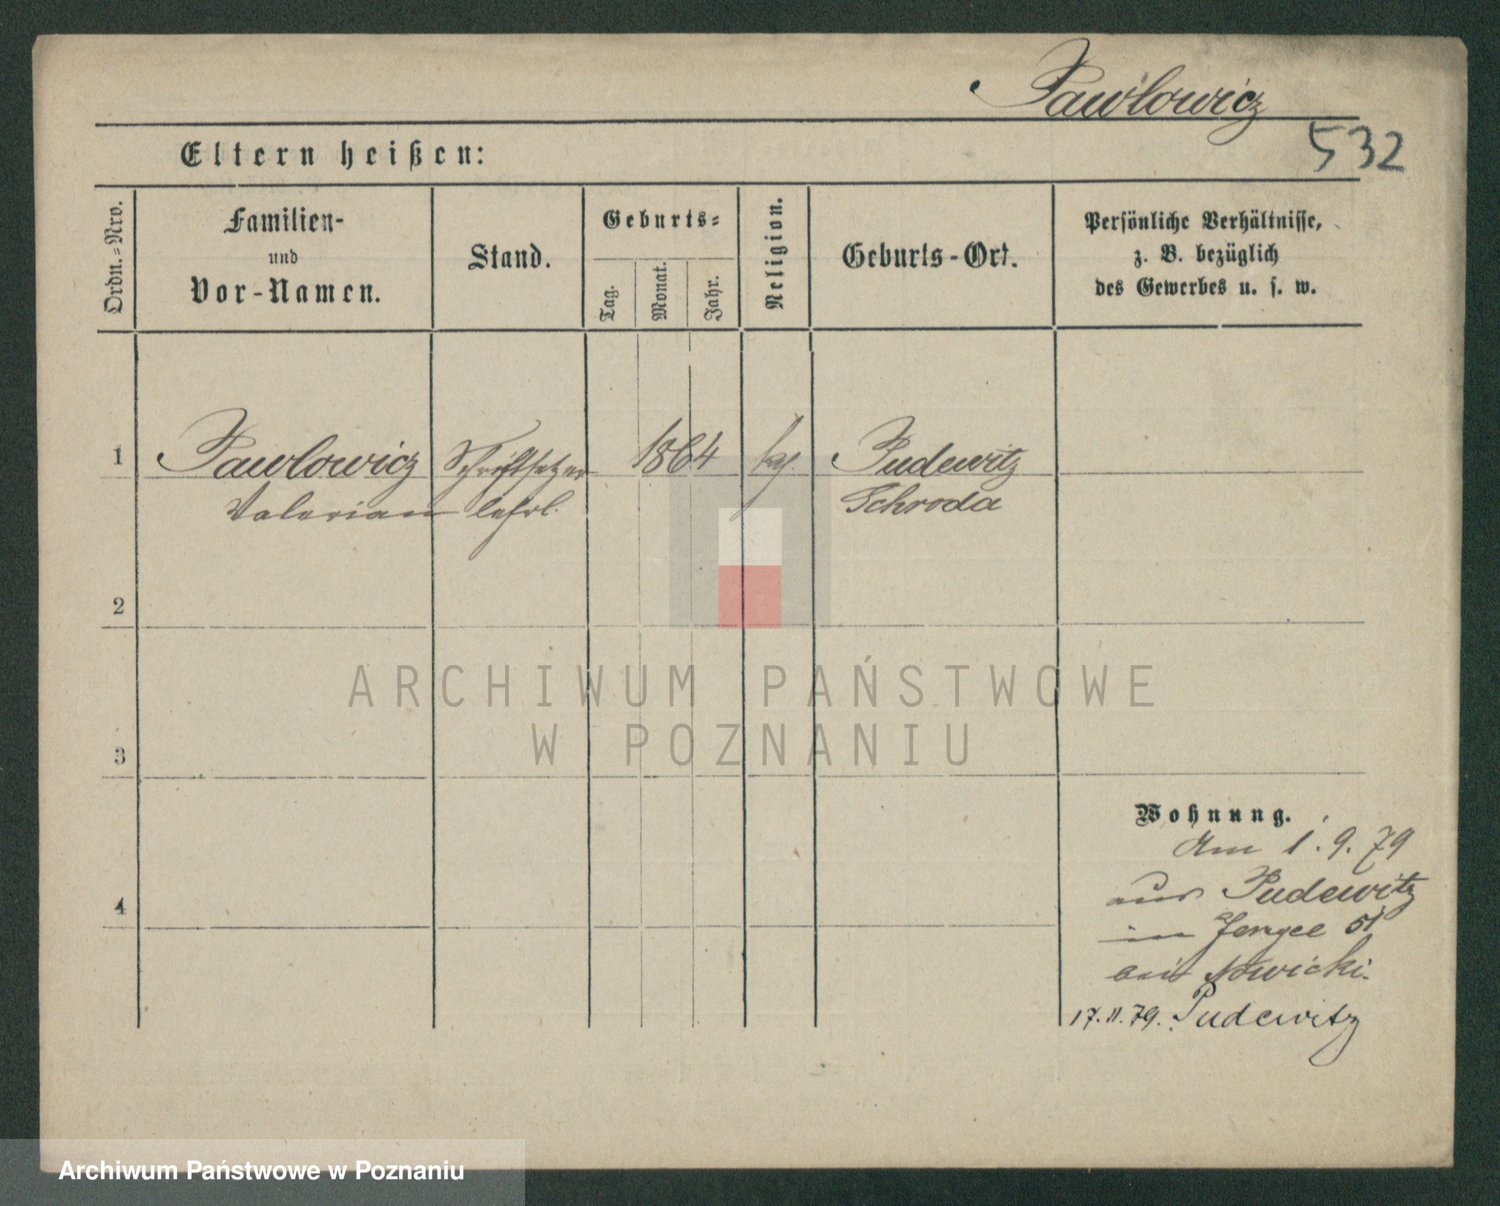 Pawlowicz
532
Eltern heißen:
Ordn.-Nro.
Familien-
und
Vor-Namen.
Stand.
Geburts-
Tag.
Monat.
Jahr.
Religion.
Geburts-Ort.
Persönliche Verhältnisse,
z. B. bezüglich
des Gewerbes u. s. w.
1 Pawlowicz Schriftsetzer 1864 kat. Pudewitz
Valerian lehrl. Schroda
2
3
4
ARCHIWUM PAŃSTWOWE
W POZNANIU
Wohnung.
Am 1.9.79
aus Pudewitz
in 51
bei Nowicki.
17.11.79. Pudewitz
Archiwum Państwowe w Poznaniu